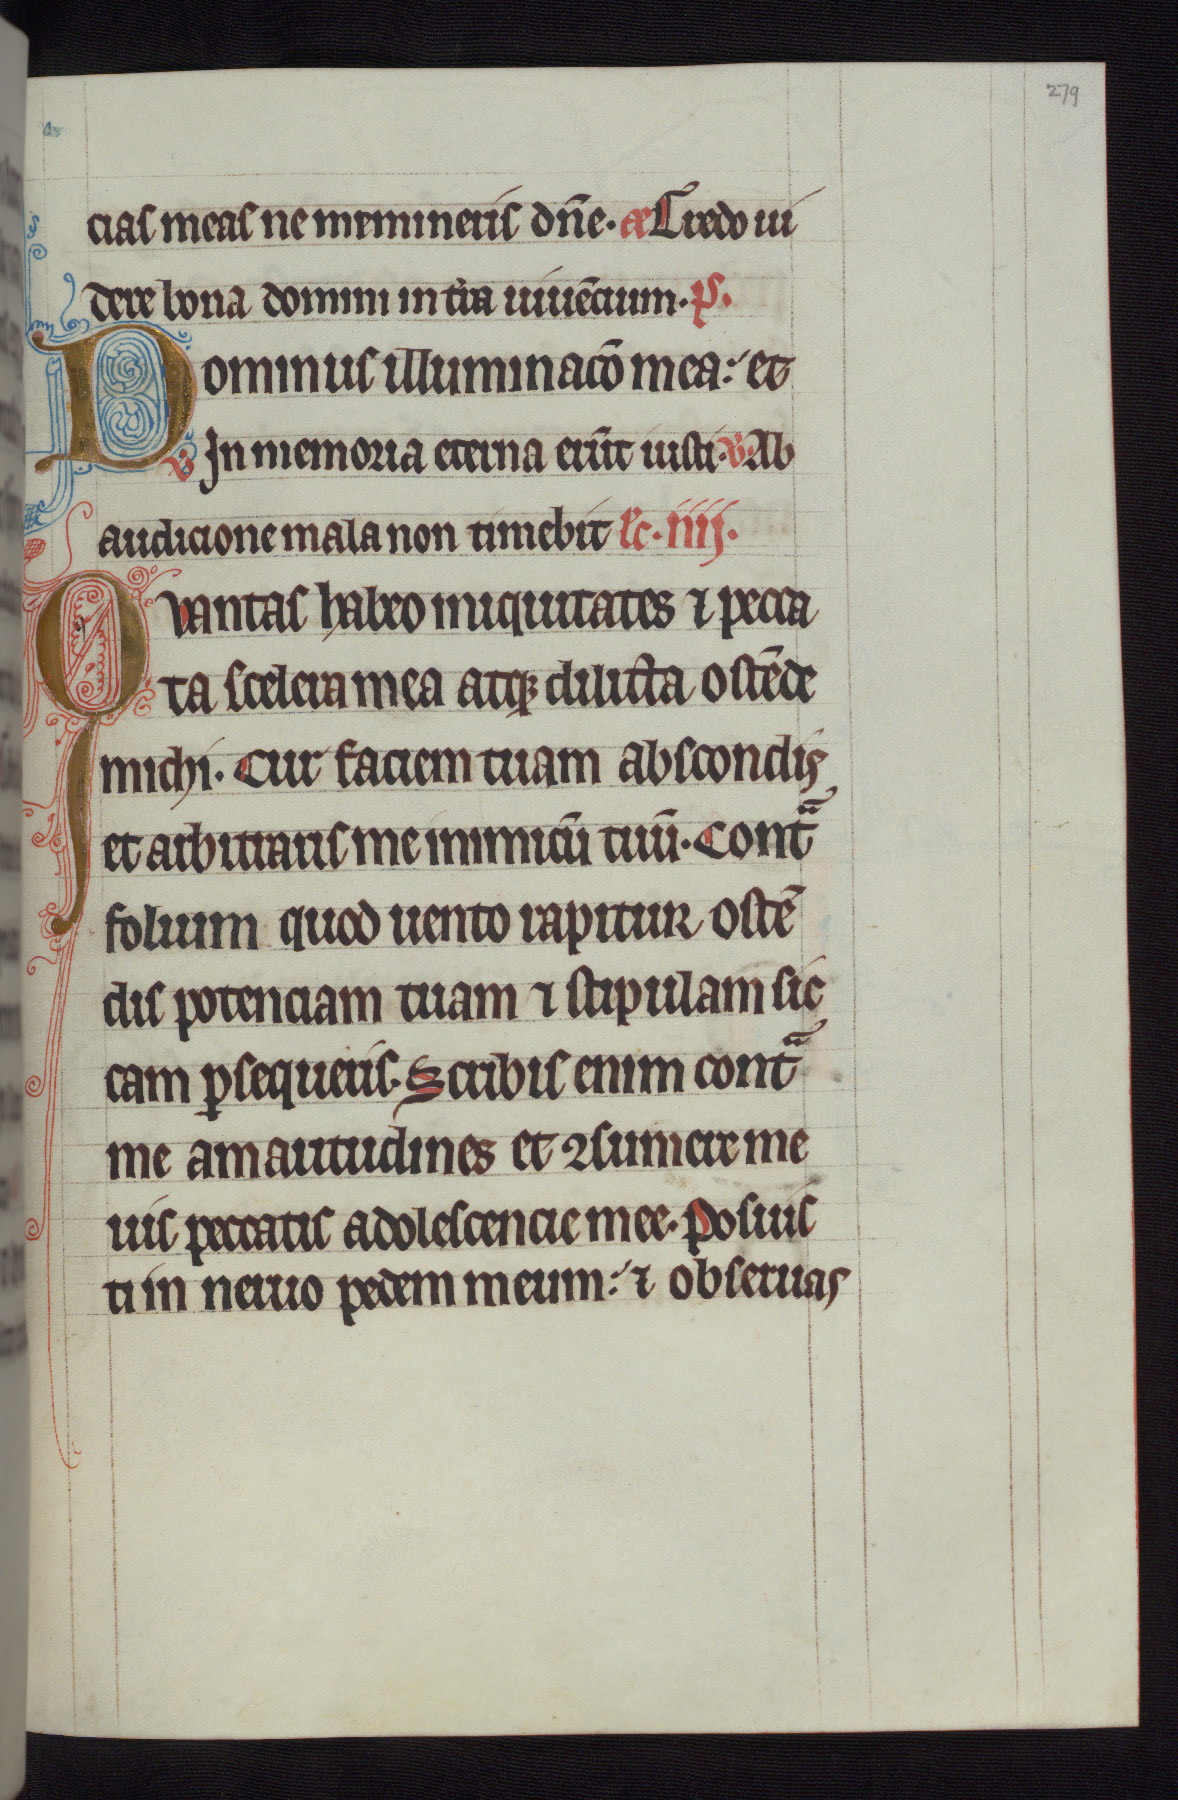 279
cias meas ne memineris dn̄e. Credo ui
dere bona domini in t̄ra uiuēcium. p̄s.
Dominus illuminacō mea: et
℣ In memoria eterna erūt iusti. ℣. Ab
audicione mala non timebit lc̄. iiij.
Quantas habeo iniquitates ⁊ pecca
ta scelera mea atqꝫ dilicta ostēde
michi. Cur faciem tuam abscondis
et arbitraris me inimicū tuū. Contᷓ
folium quod uento rapitur ostē
dis potenciam tuam ⁊ stipulam sic
cam ꝑsequeris. Scribis enim contᷓ
me amaritudines et ꝯsumere me
uis peccatis adolescencie mee. Posuis
ti in neruo pedem meum: ⁊ obseruas